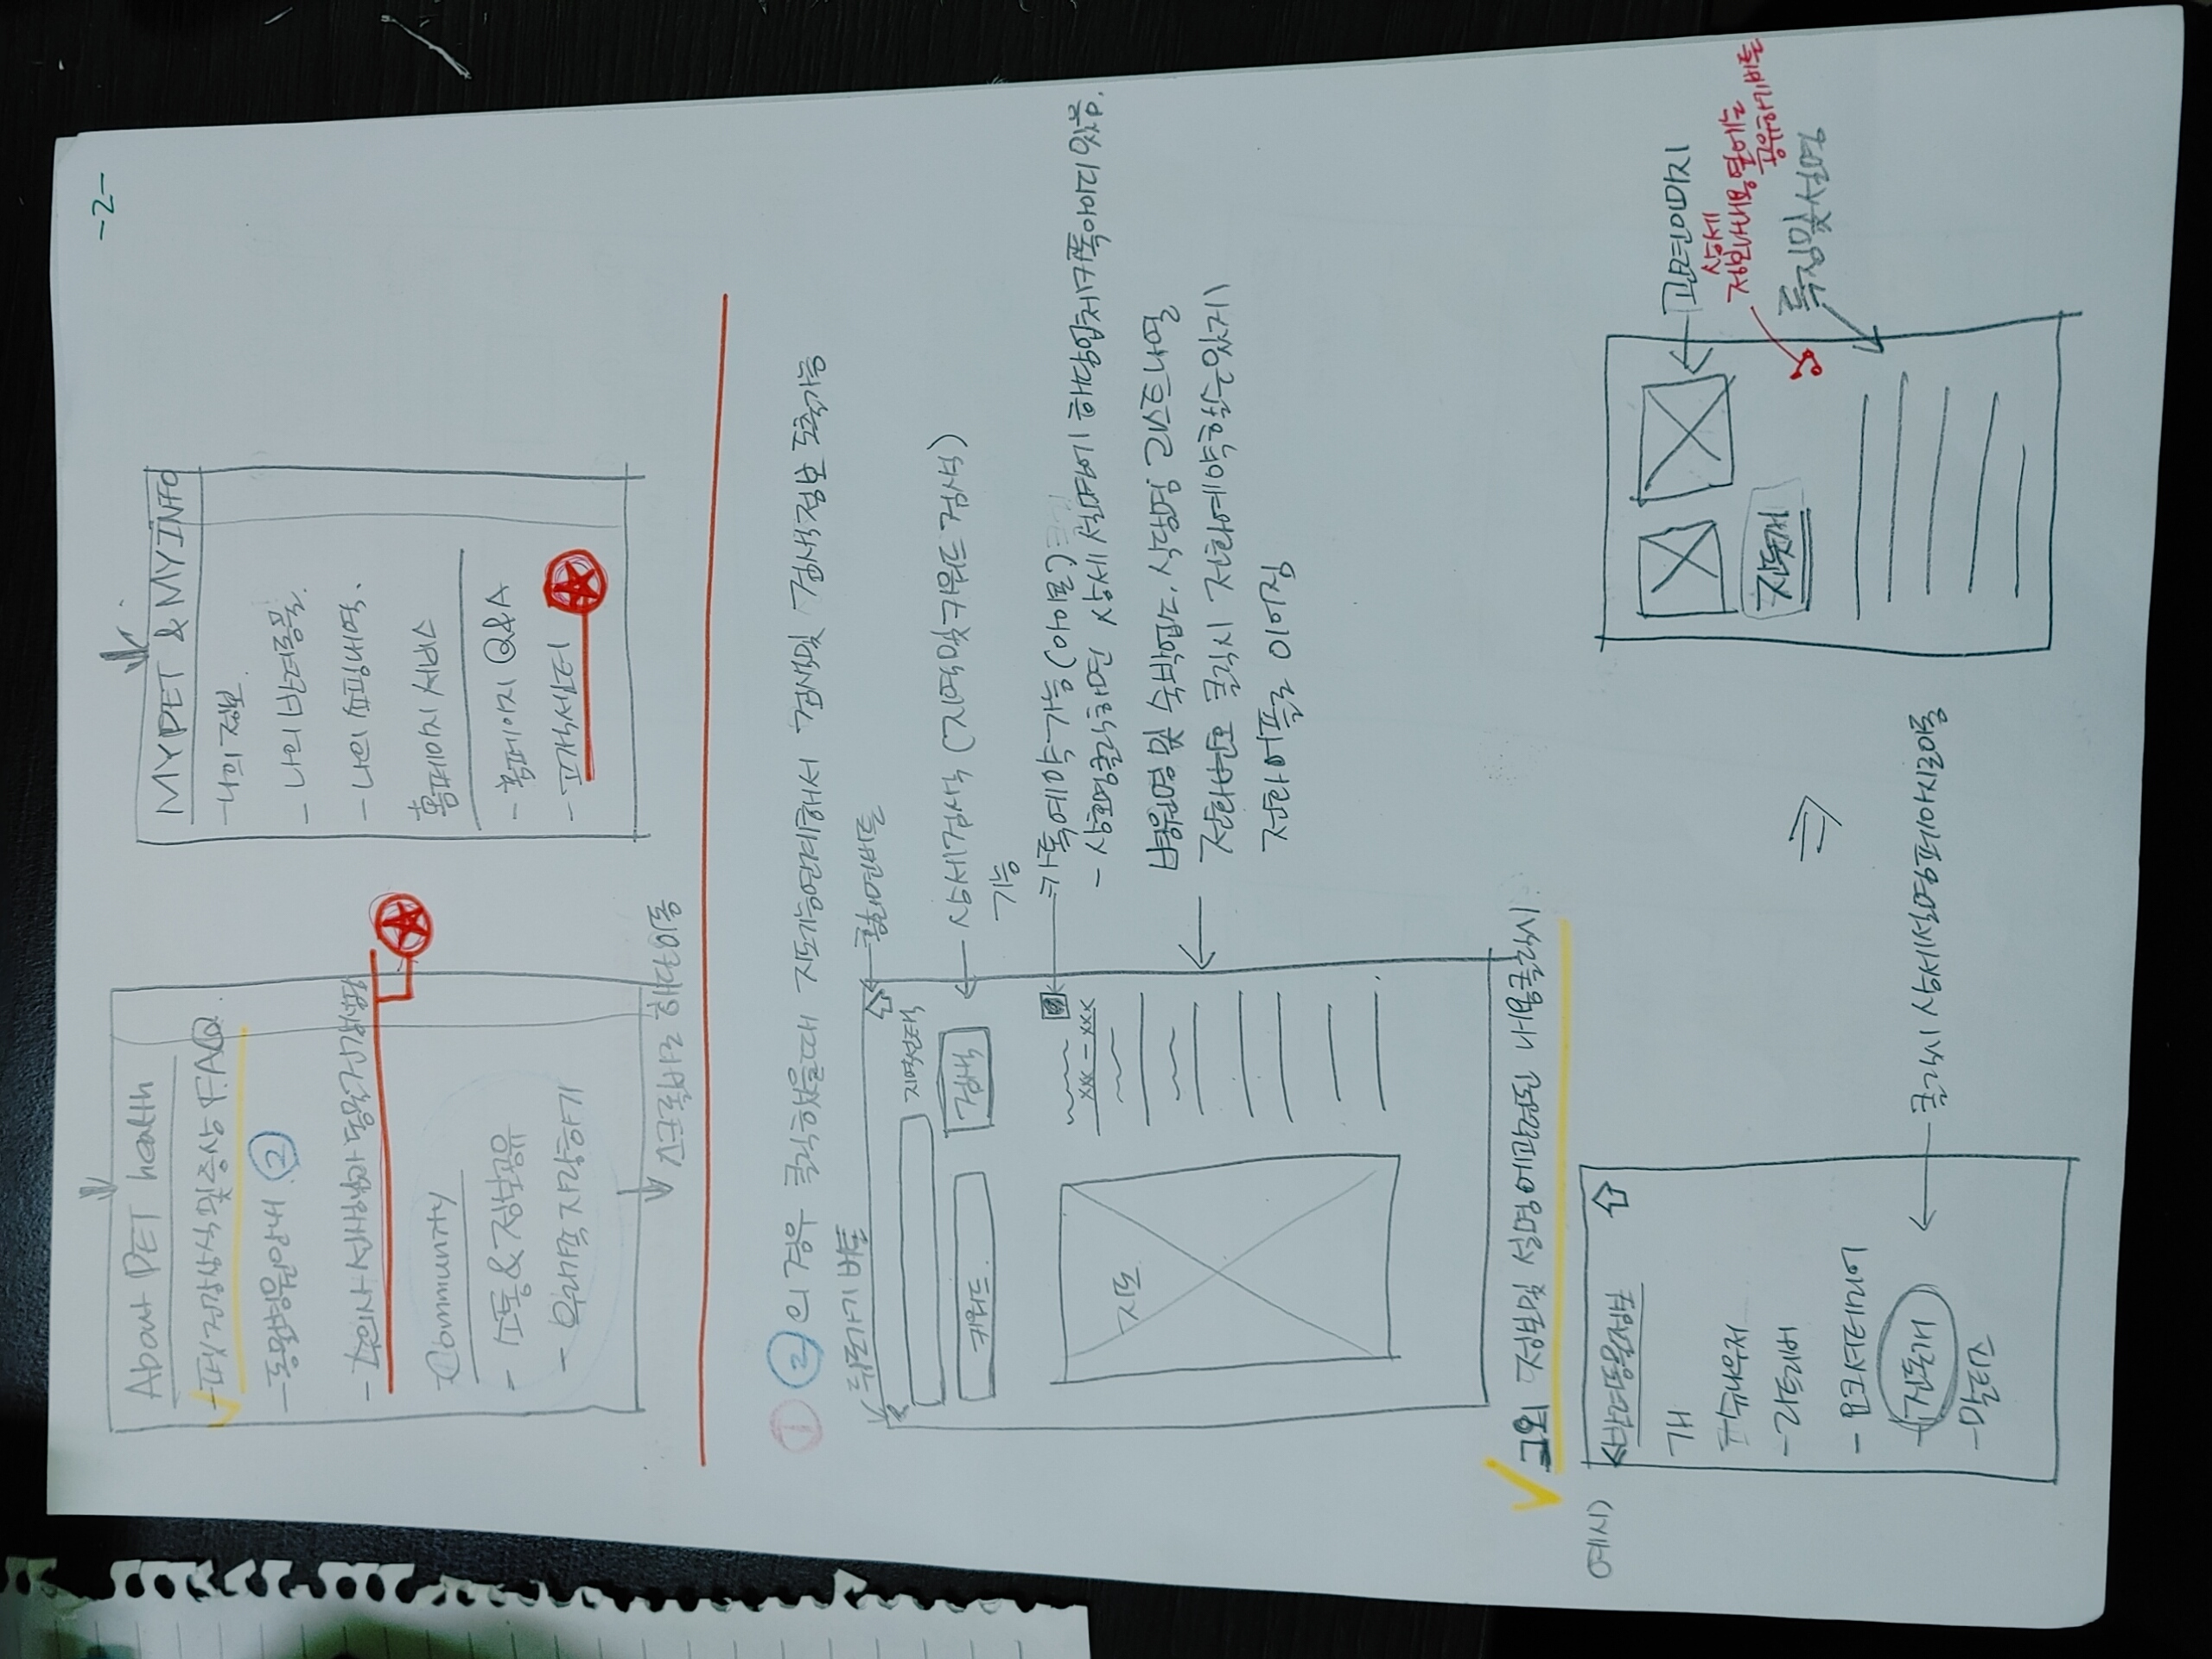 -2-
About PET health
- 펫 건강상식 및 증상 FAQ.
- 동물병원안내 ②
- 수의사 선생님과 동물건강상담
Community
- 소통 & 정보공유
- 우리가족 자랑하기
스크롤바로 해단이동
MY PET & MY INFO
- 나의 정보.
- 나의 반려동물.
- 나의 쇼핑내역.
홈페이지 서비스
- 홈페이지 Q&A
- 고객센터
① ②의 경우 클릭했을때 지도기능연계해서 검색및 검색정보 도출가능
뒤로가기 버튼
홈화면버튼
지역선택
키워드.
검색
상세검색 (지역및키워드 검색)
기능
카톡예약가능 (아이콘)
xxx - xxx
- 상호명클릭하면 상세 설명에 해당업체카톡아이디 있음.
지도
병원명 및 숙박업소, 식당명 리스트나열
전화번호 클릭시 전화예약할수있게
전화어플로 이어짐
그외 정보및 설명에관련된 내용클릭시
예시)
< 반려동물정보
개
슈나우저
- 리트리버
- 요크셔테리어
- 진돗개
- 말티즈
클릭시 상세설명페이지로이동
관련이미지
상세
정보나내용옆에는
공유하기버튼
진돗개
특징및설명